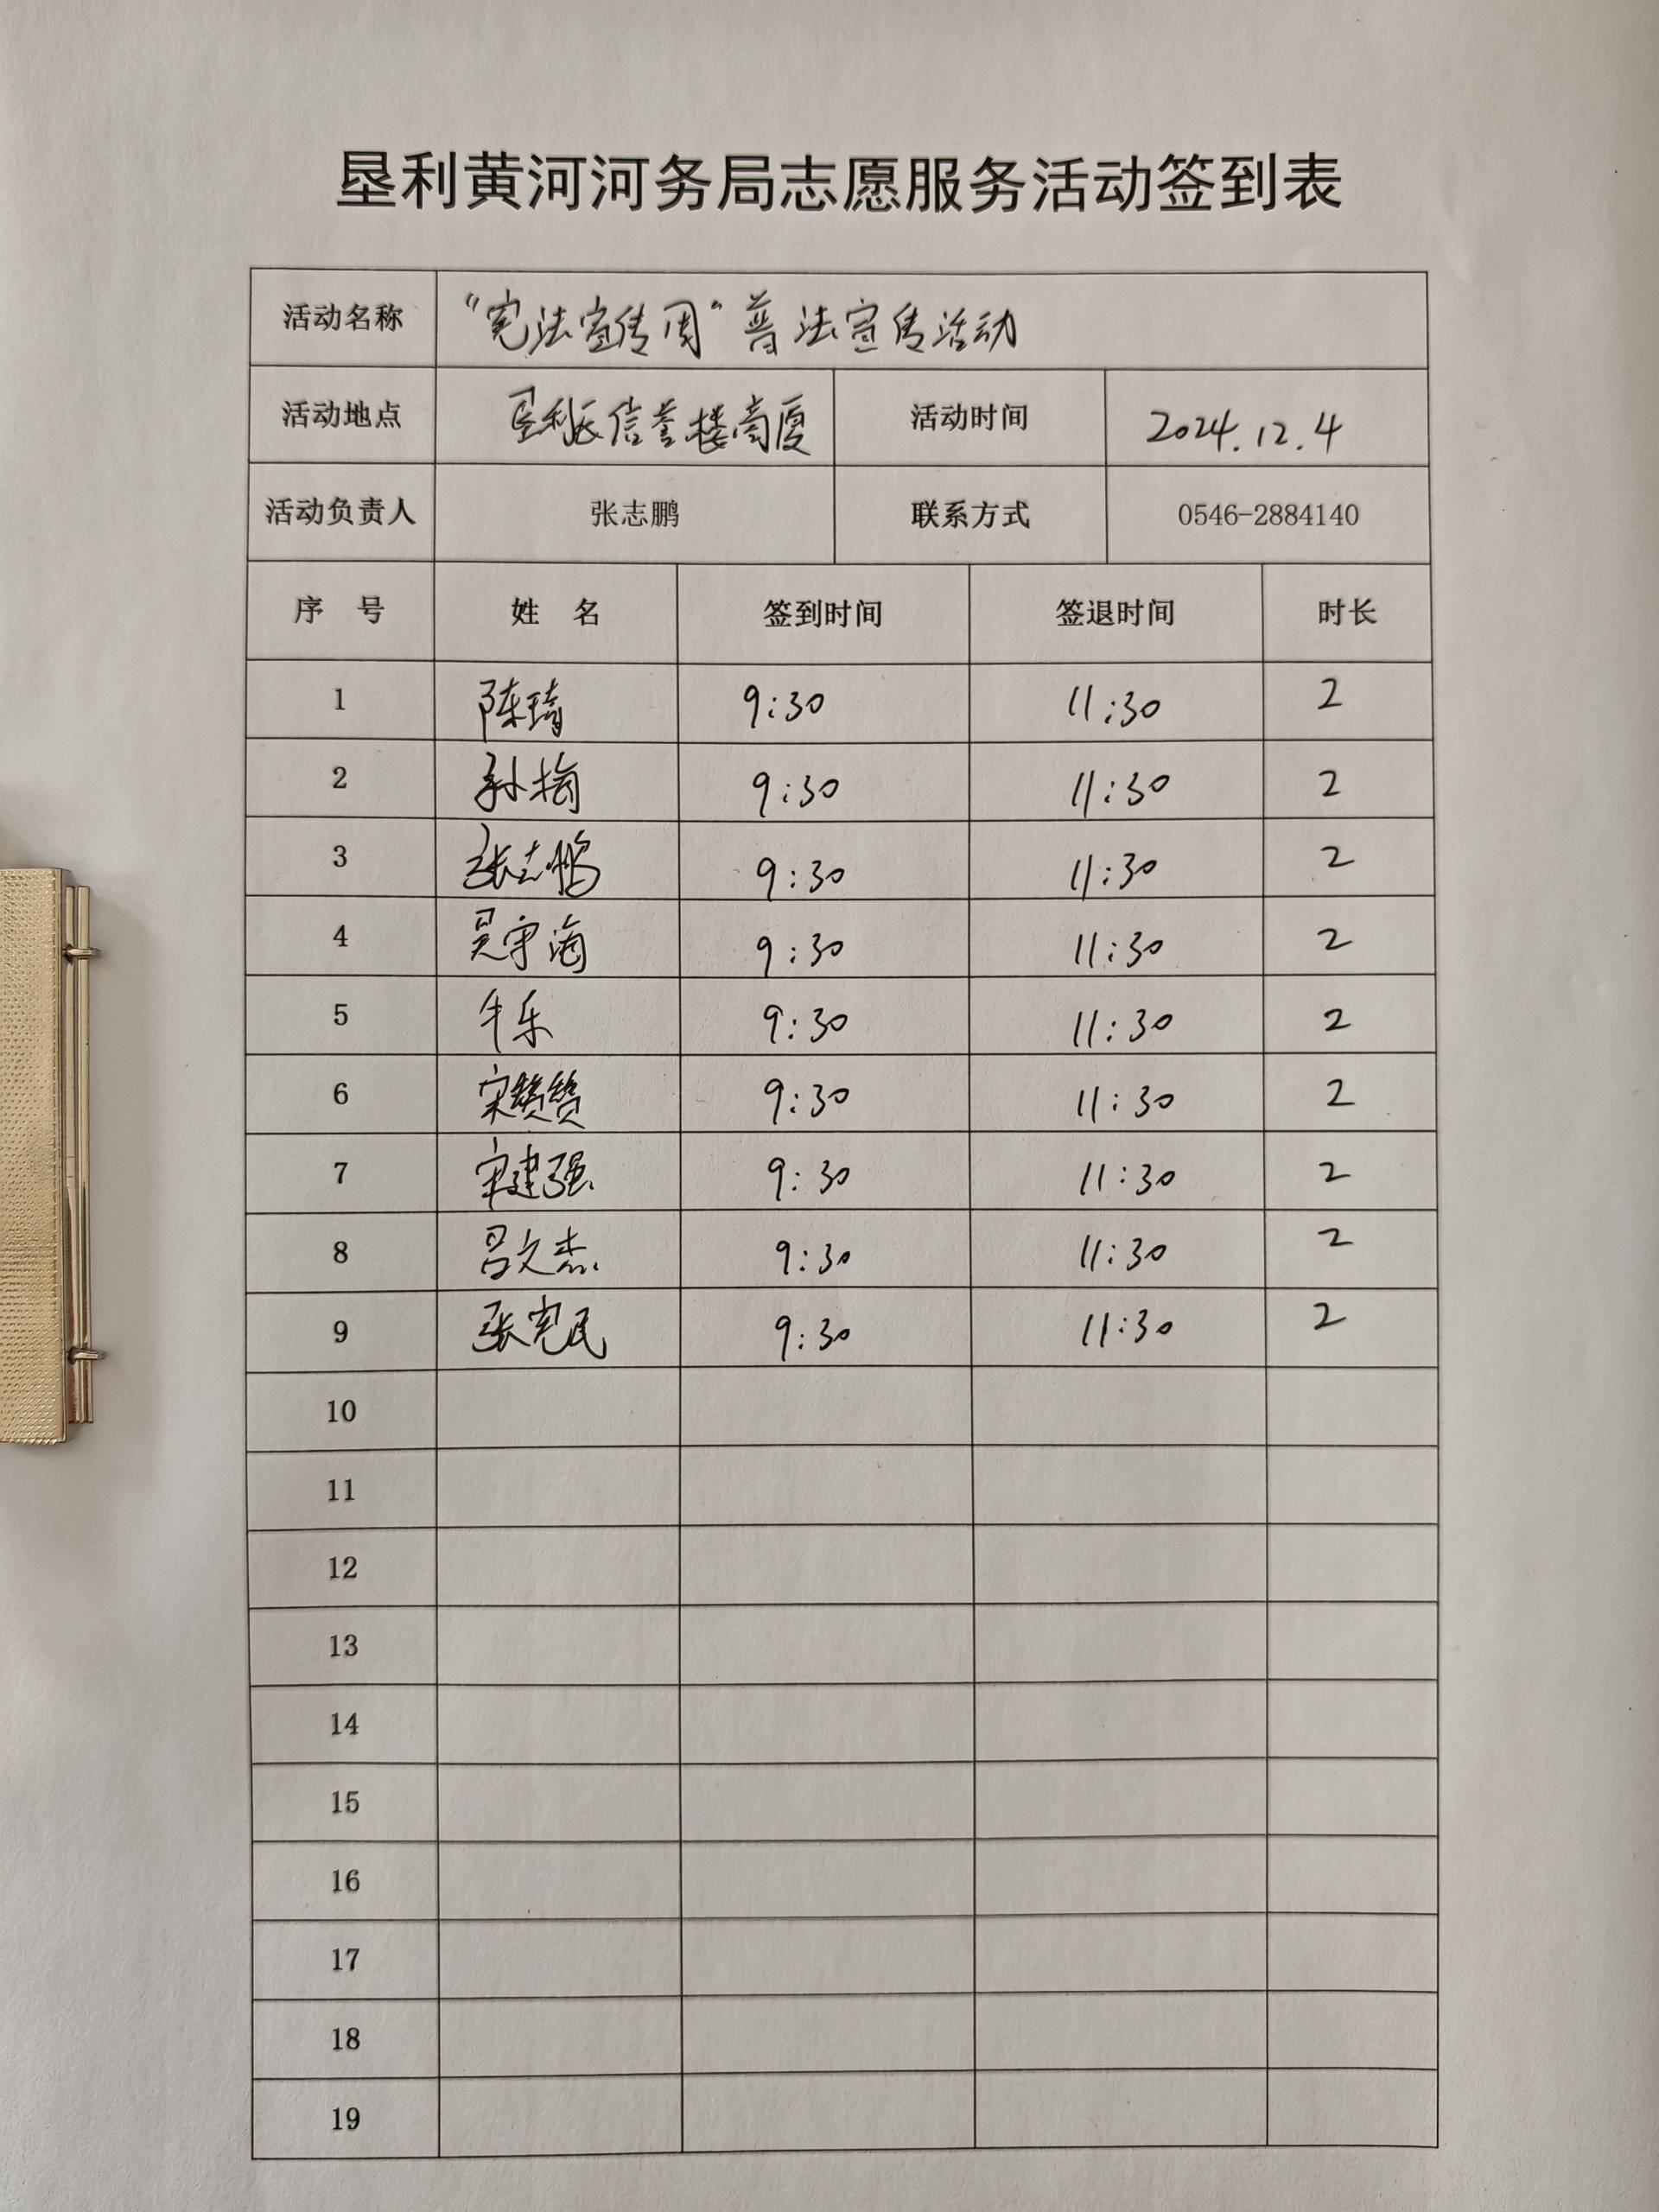 垦利黄河河务局志愿服务活动签到表
活动名称 “宪法宣传周”普法宣传活动
活动地点 垦利区信誉楼商厦 活动时间 2024.12.4
活动负责人 张志鹏 联系方式 0546-2884140
序 号 姓 名 签到时间 签退时间 时长
1 陈琦 9:30 11:30 2
2 孙梅 9:30 11:30 2
3 张志鹏 9:30 11:30 2
4 吴守海 9:30 11:30 2
5 牛乐 9:30 11:30 2
6 宋赞赞 9:30 11:30 2
7 宋建强 9:30 11:30 2
8 吕文杰 9:30 11:30 2
9 张宪民 9:30 11:30 2
10
11
12
13
14
15
16
17
18
19